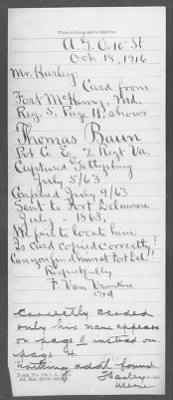 A.G.O. 10th St.
Oct 18, 1916
Mr. Harley:
Card from
Fort McHenry, Md.
Reg. 5, Page 11, shows
Thomas Baun
Pvt Co E, 2 Regt Va.
Captured Gettysburg
July 5/63
Confined July 9/63
Sent to Fort Delaware
July - 1863,
We fail to locate him.
Is card copied correctly?
Can you find him at Fort Del?
Respectfully
F. Van
Correctly carded
only his name appears
on page 11 instead on
page 4.
Nothing add'l found.
Harley